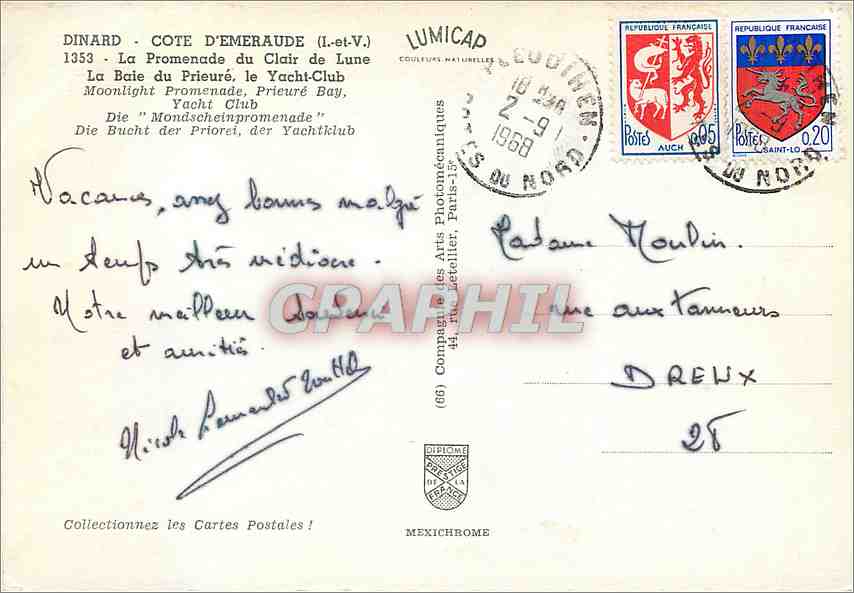 DINARD - COTE D'EMERAUDE (I.-et-V.)
1353 - La Promenade du Clair de Lune
La Baie du Prieuré, le Yacht-Club
Moonlight Promenade, Prieuré Bay,
Yacht Club
Die "Mondscheinpromenade"
Die Bucht der Priorei, der Yachtklub
LUMICAP
COULEURS NATURELLES
PLEUDIHEN
2-9
1968
COTES DU NORD
REPUBLIQUE FRANÇAISE
POSTES
0,05
AUCH
REPUBLIQUE FRANÇAISE
POSTES
0,20
SAINT-LO
EN
DU NORD
Vacances, assez bonnes malgré
un temps très médiocre.
Notre meilleur souvenir
et amitiés.
Nicole
(66) Compagnie des Arts Photomécaniques
44, rue Letellier, Paris-15e
Madame Moulin.
rue aux tanneurs
DREUX
28
CPARPHIL
DIPLOME
PRESTIGE
DE LA
FRANCE
Collectionnez les Cartes Postales !
MEXICHROME